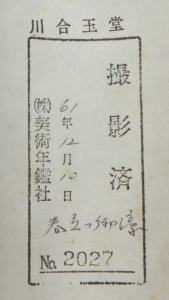 川合玉堂
撮影済
61年12月10日
㈱美術年鑑社
春之御濠
No. 2027